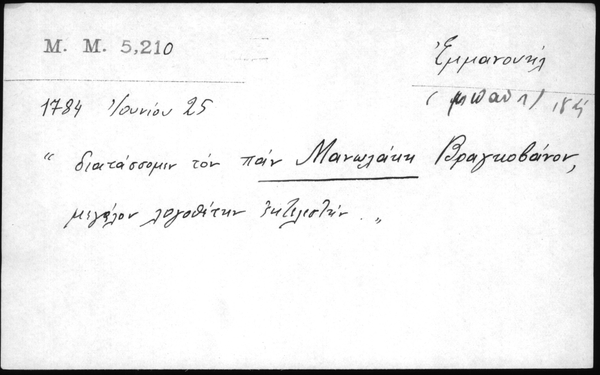 M. M. 5,210
Ἐμμανουήλ
1784 Ἰουνίου 25
" διατάσσομεν τὸν πὰν Μανωλάκη Βραγκοβάνον,
μεγάλον λογοθέτην ἐκτελεστήν. "